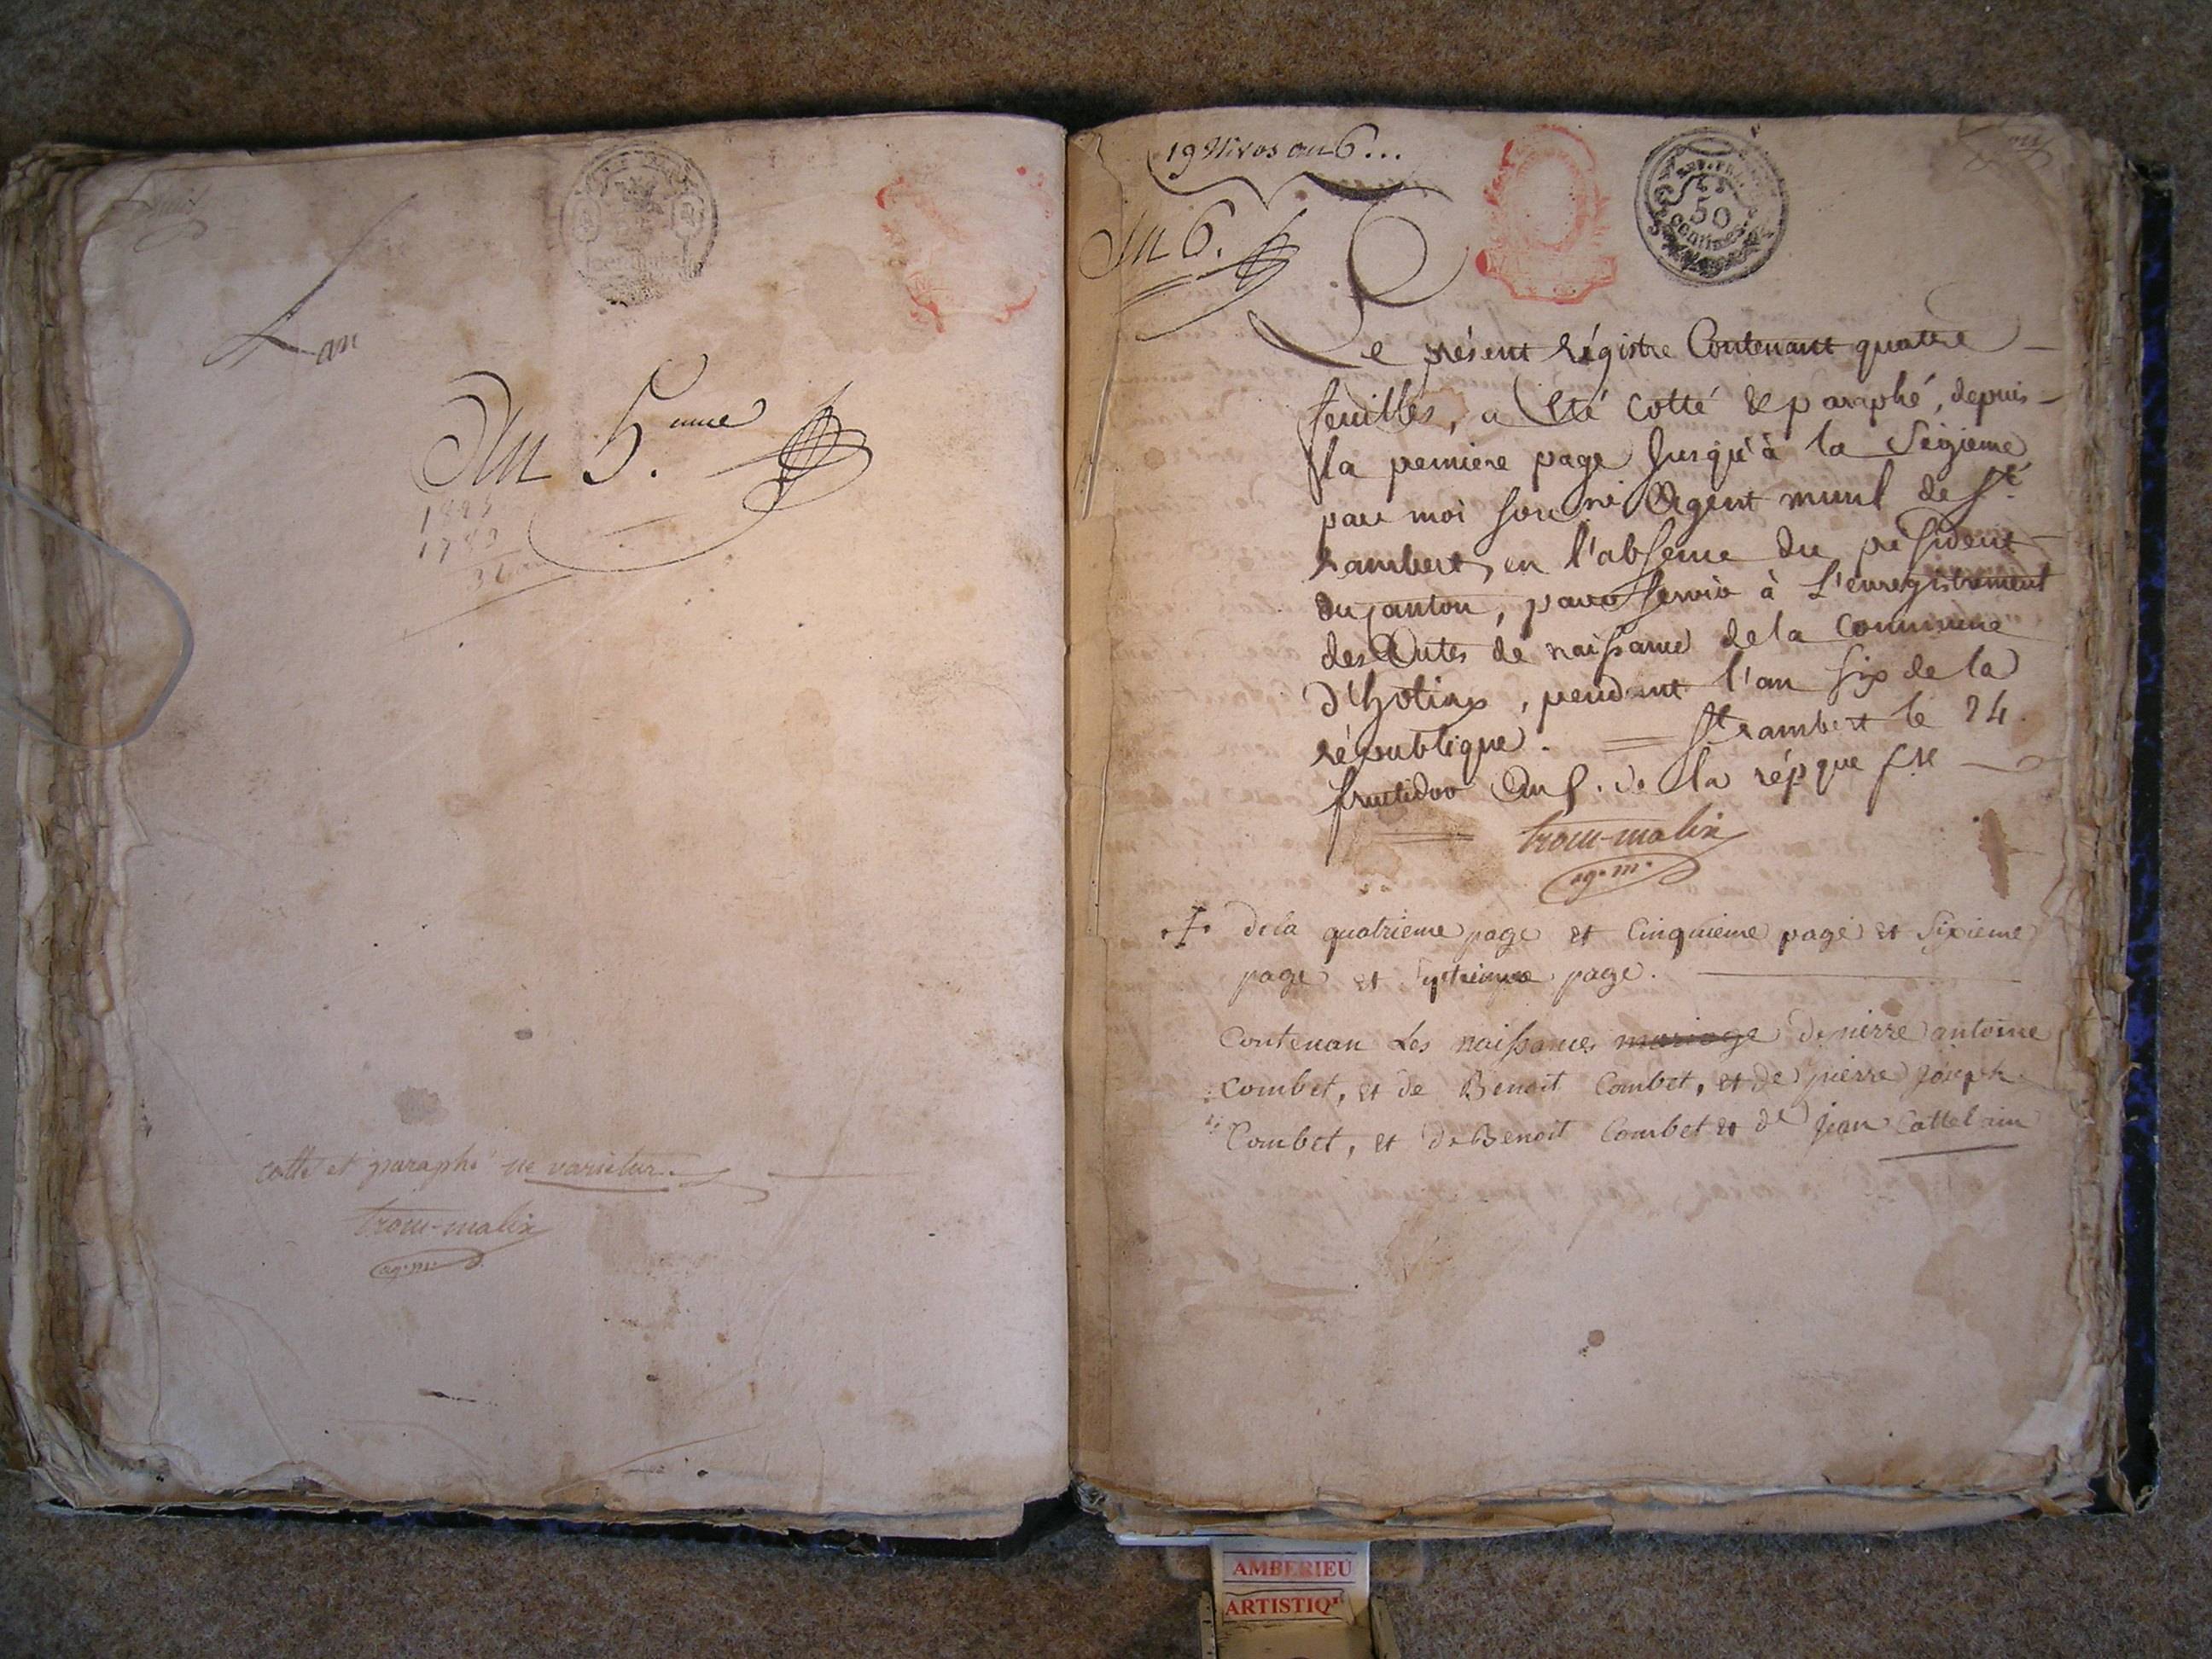 huit
Lan
An 5.eme
1825
1793
32 an
cotté et paraphé ne varietur.
trocu-malix
ag. m.
19 Nivos an 6...
An 6.
50
Centimes
Le présent régistre Contenant quatre
feuilles, a Eté cotté & paraphé, depuis
la premiere page Jusqu'à la Seizieme
par moi sousné Agent munl de St
rambert, en l'absence du président
du canton, pour servir à L'enregistrement
des Actes de naissance de la commune
d'hotias, pendant l'an six de la
république. St rambert le 24
fructidor An 5. de la répque fse
trocu-malix
ag. m.
dela quatrieme page et Cinquieme page et Sixieme
page et septieme page.
Contenan Les naissances mariage de pierre antoine
Combet, et de Benoit Combet, et de pierre joseph
Combet, et de Benoit Combet et de jean Cattelain
AMBERIEU
ARTISTIQ